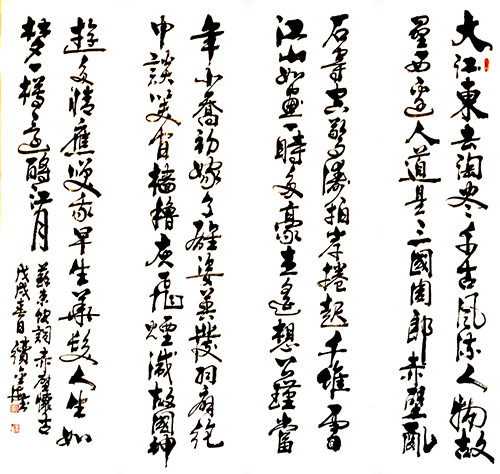 大江東去淘尽千古風流人物故
壘西邊人道是三國周郎赤壁亂
石穿空驚濤拍岸捲起千堆雪
江山如畫一時多豪杰遙想公瑾當
年小喬初嫁了雄姿英發羽扇綸
巾談笑間檣櫓灰飛煙滅故國神
遊多情應笑我早生華髮人生如
夢一樽還酹江月
蘇東坡詞赤壁懷古
戊戌春日